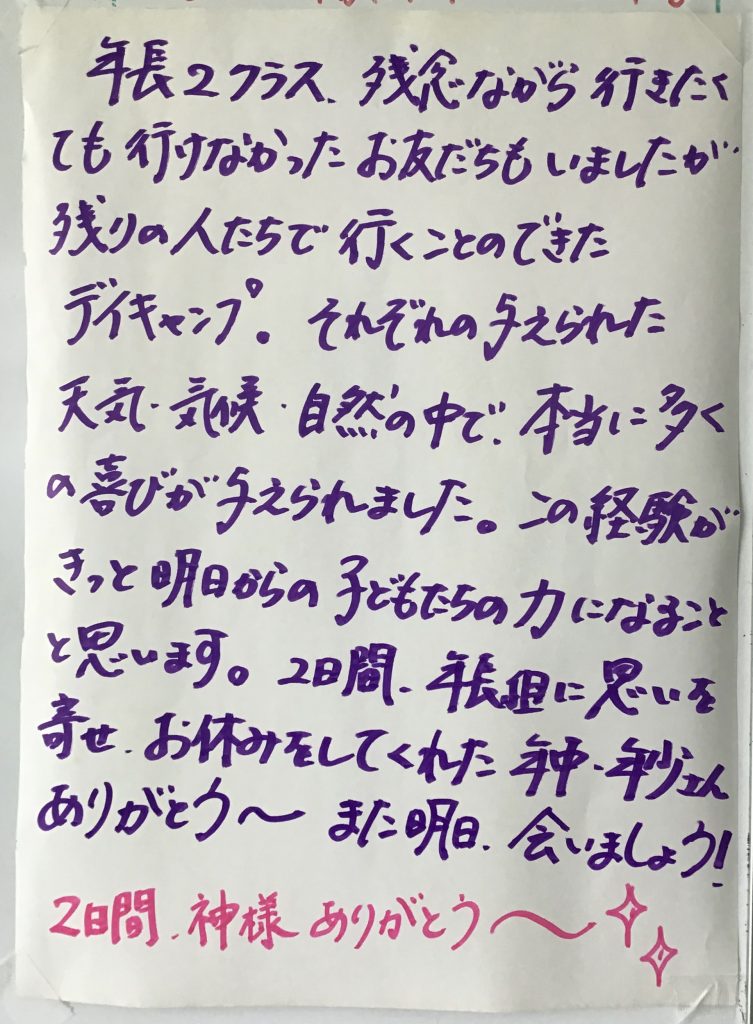 年長2クラス、残念ながら行きたく
ても行けなかったお友だちもいましたが
残りの人たちで行くことのできた
デイキャンプ。それぞれの与えられた
天気・気候・自然の中で、本当に多く
の喜びが与えられました。この経験が
きっと明日からの子どもたちの力になること
と思います。2日間、年長組に思いを
寄せ、お休みをしてくれた年中・年少さん
ありがとう〜 また明日、会いましょう!
2日間、神様ありがとう〜